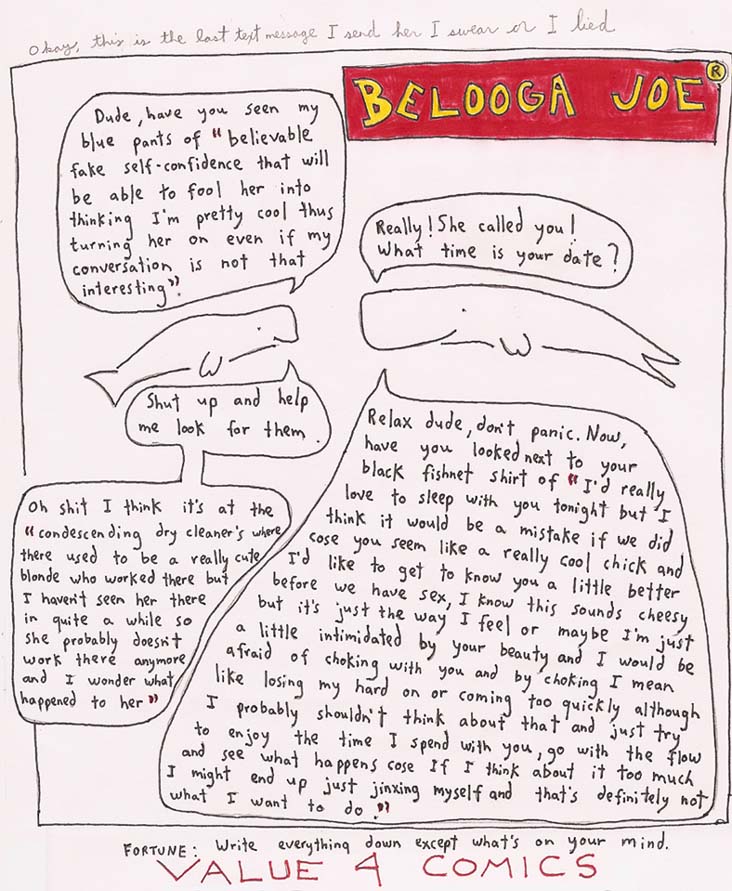 Okay, this is the last text message I send her I swear or I lied
BELOOGA JOE ®
Dude, have you seen my
blue pants of "believable
fake self-confidence that will
be able to fool her into
thinking I'm pretty cool thus
turning her on even if my
conversation is not that
interesting"?
Really! She called you!
What time is your date?
Shut up and help
me look for them.
Relax dude, don't panic. Now,
have you looked next to your
black fishnet shirt of "I'd really
love to sleep with you tonight but I
think it would be a mistake if we did
cose you seem like a really cool chick and
I'd like to get to know you a little better
before we have sex, I know this sounds cheesy
but it's just the way I feel or maybe I'm just
a little intimidated by your beauty and I would be
afraid of choking with you and by choking I mean
like losing my hard on or coming too quickly although
I probably shouldn't think about that and just try
to enjoy the time I spend with you, go with the flow
and see what happens cose If I think about it too much
I might end up just jinxing myself and that's definitely not
what I want to do."
Oh shit I think it's at the
"condescending dry cleaner's where
there used to be a really cute
blonde who worked there but
I haven't seen her there
in quite a while so
she probably doesn't
work there anymore
and I wonder what
happened to her"
FORTUNE: Write everything down except what's on your mind.
VALUE 4 COMICS